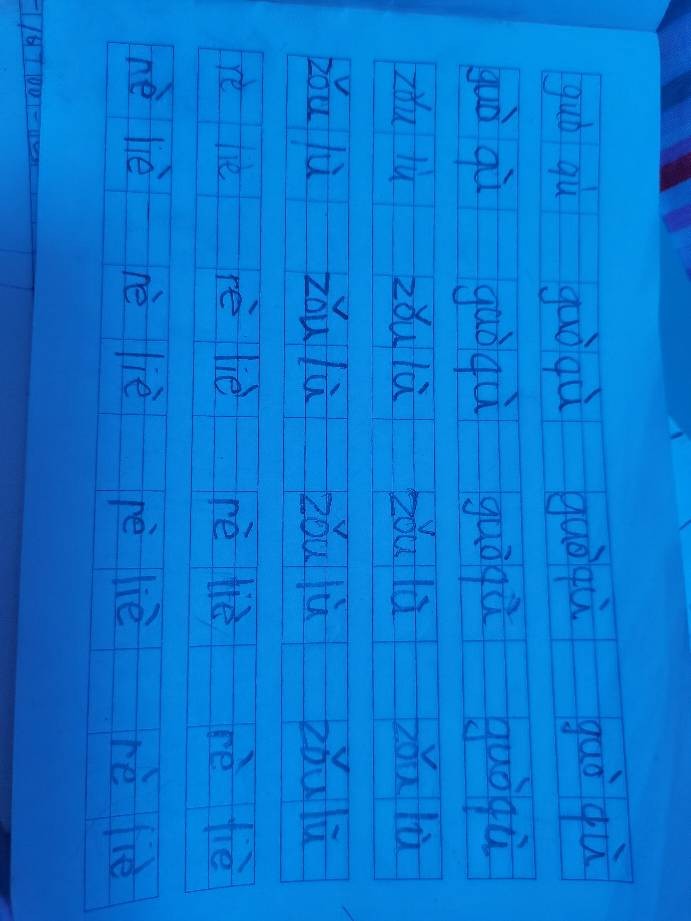 guò qù guò qù guò qù guò qù
guò qù guò qù guò qù guò qù
zǒu lù zǒu lù zǒu lù zǒu lù
zǒu lù zǒu lù zǒu lù zǒu lù
rè liè rè liè rè liè rè liè
rè liè rè liè rè liè rè liè